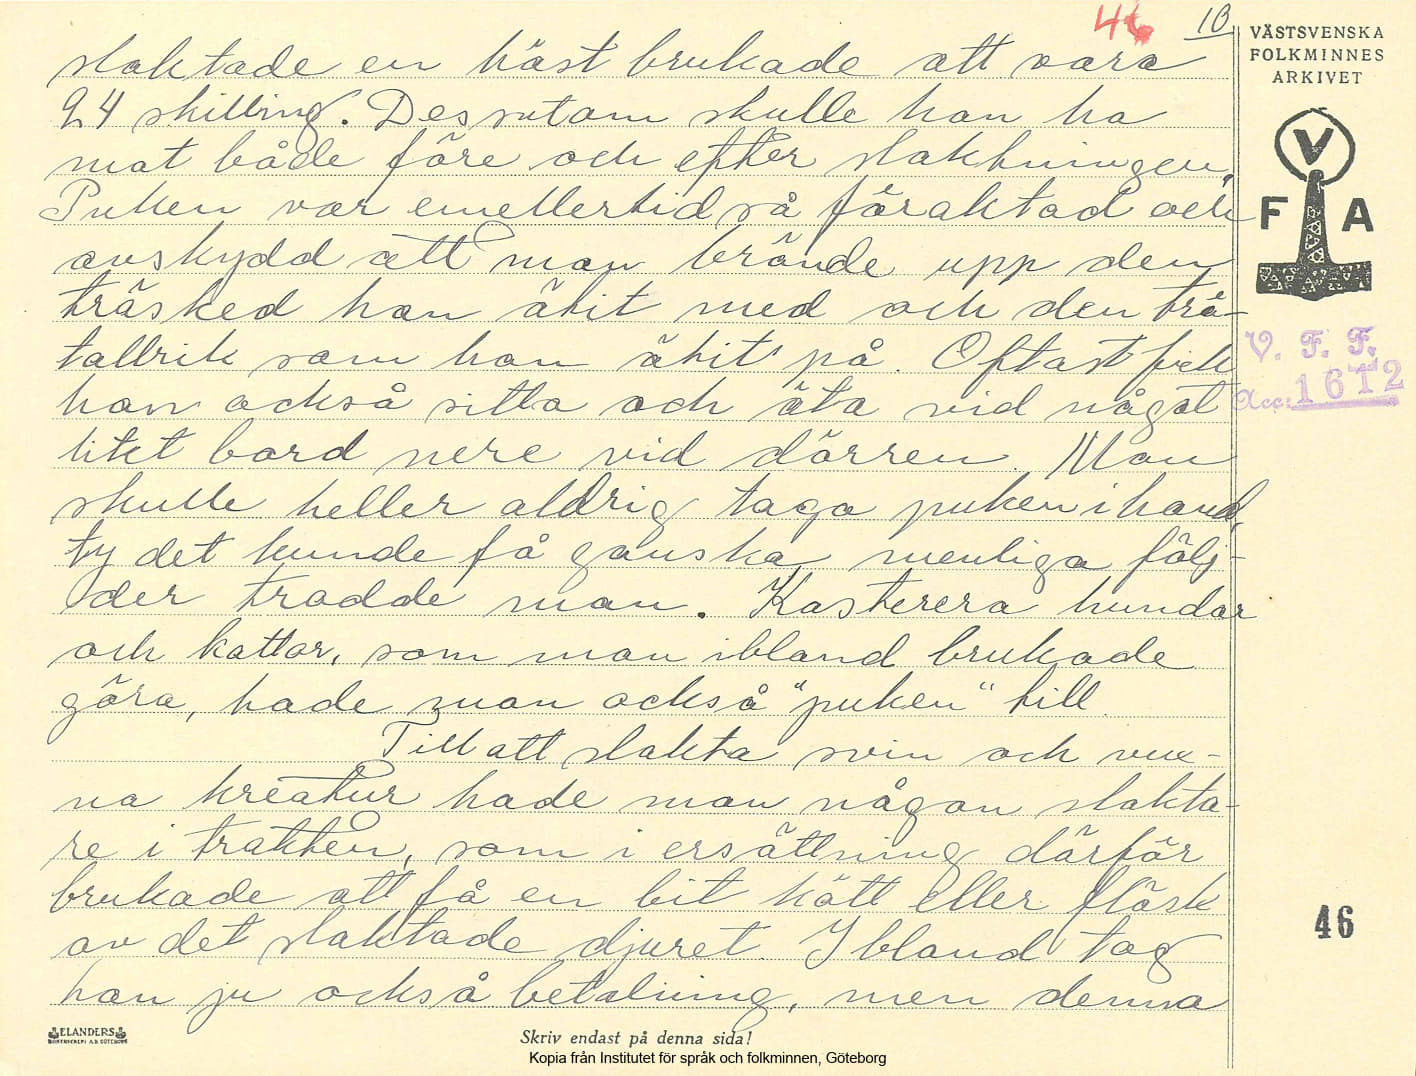 46 10
VÄSTSVENSKA
FOLKMINNES
ARKIVET
V
F A
V. F. F.
Acc: 1612
slaktade en häst brukade att vara
24 skilling. Dessutom skulle han ha
mat både före och efter slaktningen.
Puken var emellertid så föraktad och
avskydd att man brände upp den
träsked han ätit med och den trä-
tallrik som han ätit på. Oftast fick
han också sitta och äta vid något
litet bord nere vid dörren. Man
skulle heller aldrig taga puken i hand,
ty det kunde få ganska menliga följ-
der trodde man. Kasterera hundar
och kattor, som man ibland brukade
göra, hade man också "puken" till.
Till att slakta svin och vux-
na kreatur hade man någon slakta-
re i trakten, som i ersättning därför
brukade att få en bit kött eller fläsk
av det slaktade djuret. Ibland tog
han ju också betalning, men denna
46
ELANDERS
Skriv endast på denna sida!
Kopia från Institutet för språk och folkminnen, Göteborg